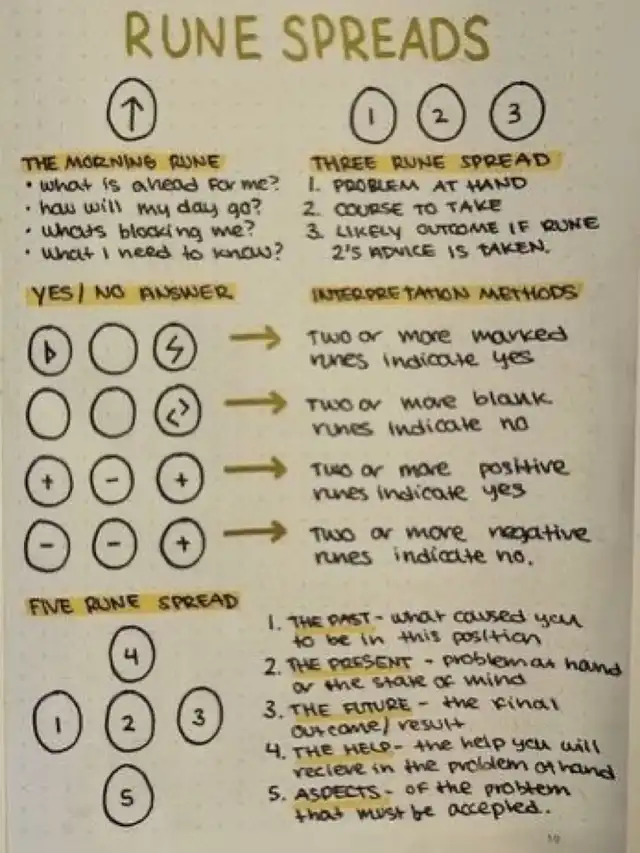 RUNE SPREADS
↑
THE MORNING RUNE
• what is ahead for me?
• how will my day go?
• whats blocking me?
• what I need to know?
1 2 3
THREE RUNE SPREAD
1. PROBLEM AT HAND
2. COURSE TO TAKE
3. LIKELY OUTCOME IF RUNE
2'S ADVICE IS TAKEN.
YES/NO ANSWER
INTERPRETATION METHODS
Two or more marked
runes indicate yes
Two or more blank
runes indicate no
+ - +
Two or more positive
runes indicate yes
- - +
Two or more negative
runes indicate no.
FIVE RUNE SPREAD
4
1 2 3
5
1. THE PAST - what caused you
to be in this position
2. THE PRESENT - problem at hand
or the state of mind
3. THE FUTURE - the final
outcome/result
4. THE HELP - the help you will
recieve in the problem at hand
5. ASPECTS - of the problem
that must be accepted.